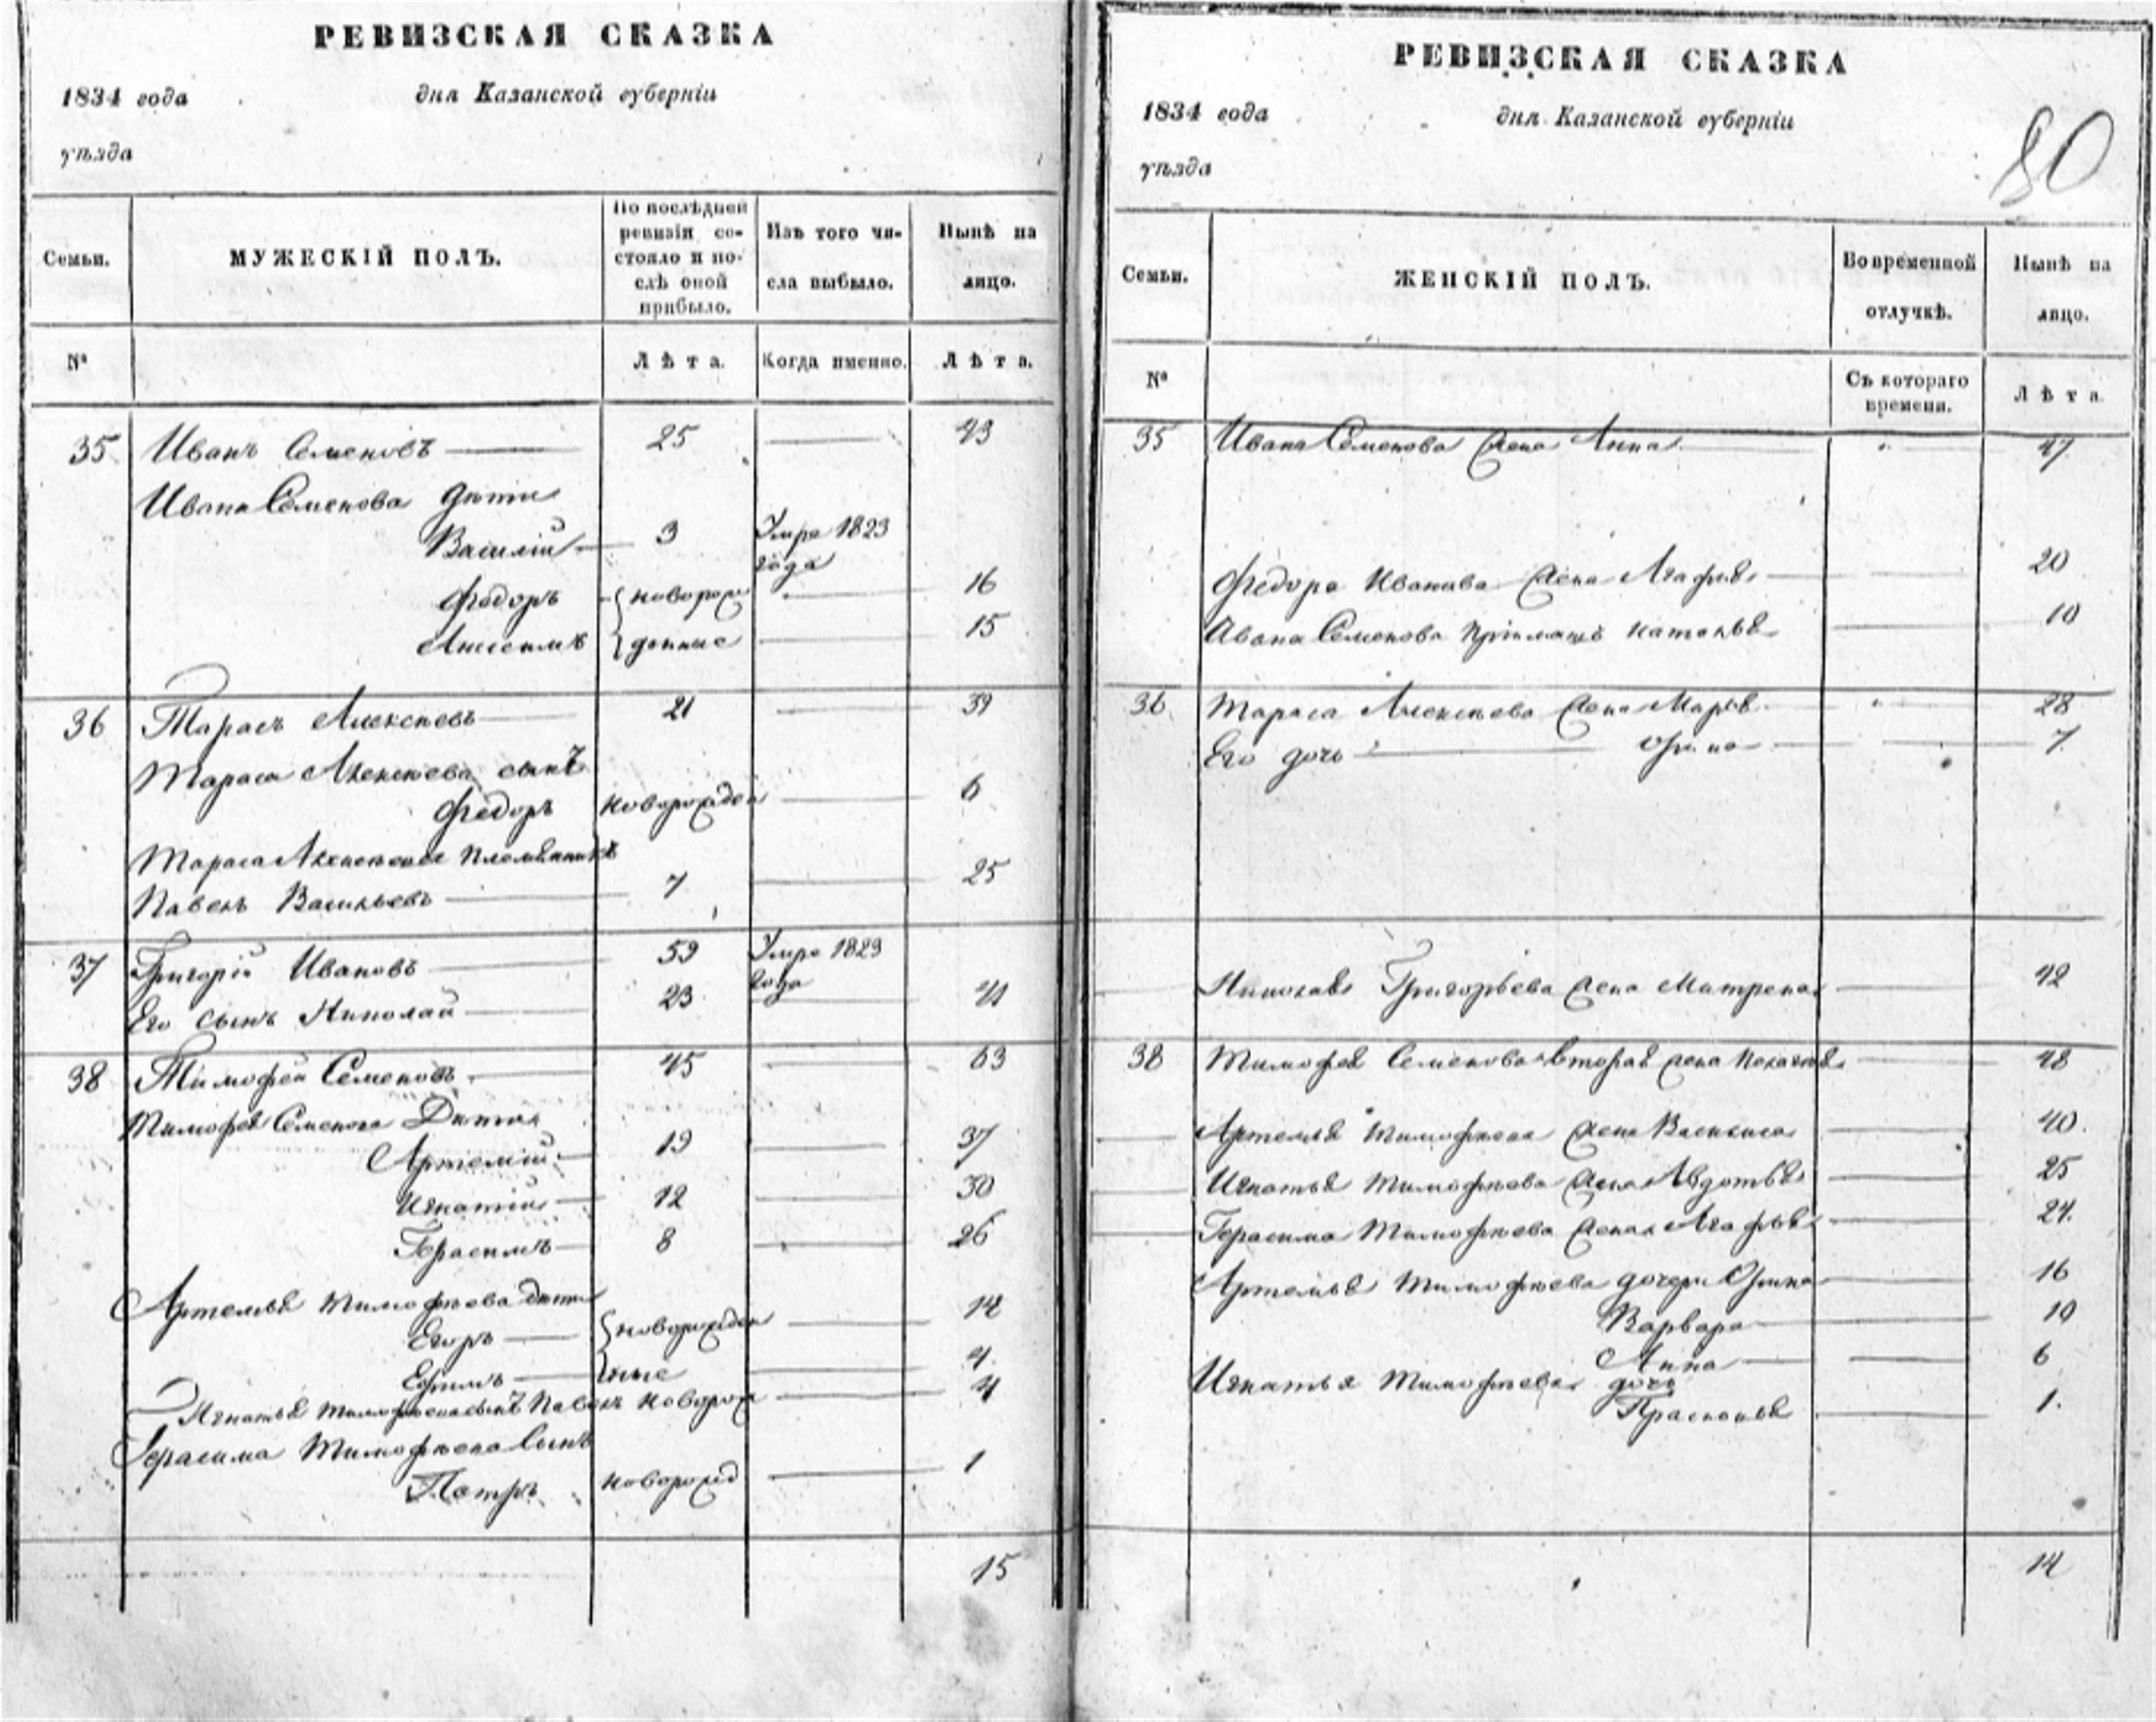 РЕВИЗСКАЯ СКАЗКА
1834 года
дня Казанской губерніи
уѣзда
Семьи.
МУЖЕСКІЙ ПОЛЪ.
По послѣдней
ревизіи со-
стояло и по-
слѣ оной
прибыло.
Изъ того чи-
сла выбыло.
Нынѣ на
лицо.
№
Лѣта.
Когда именно.
Лѣта.
35 Иванъ Семеновъ 25 43
Ивана Семенова дѣти
Василій 3 Умре 1823
года
Федоръ новорож 16
Анисимъ денные 15
36 Тарасъ Алексѣевъ 21 39
Тараса Алексѣева сынъ
Федоръ новорожден 6
Тараса Алексѣева племянникъ
Павелъ Васильевъ 7 25
37 Григорій Ивановъ 59 Умре 1829
года
Его сынъ Николай 23 41
38 Тимофей Семеновъ 45 63
Тимофея Семенова Дѣти
Артемій 19 37
Игнатій 12 30
Герасимъ 8 26
Артемья Тимофѣева дѣти
Егоръ новорожден 12
Ефимъ ные 4
Игнатья Тимофѣева сынъ Павелъ новорож 4
Герасима Тимофѣева Сынъ
Петръ новорожд 1
15
РЕВИЗСКАЯ СКАЗКА
80
1834 года
дня Казанской губерніи
уѣзда
Семьи.
ЖЕНСКІЙ ПОЛЪ.
Во временной
отлучкѣ.
Нынѣ на
лицо.
№
Съ котораго
времени.
Лѣта
35 Ивана Семенова жена Анна 47
Федора Иванова жена Агафья 20
Ивана Семенова Наталья 10
36 Тараса Алексѣева жена Марья 28
Его дочь Орина 7
Николая Григорьева жена Матрена 42
38 Тимофея Семенова вторая жена Пелагея 48
Артемья Тимофѣева жена Василиса 40.
Игнатья Тимофѣева жена Авдотья 25
Герасима Тимофѣева жена Агафья 24.
Артемья Тимофѣева дочери Орина 16
Варвара 10
Анна 6
Игнатья Тимофѣева дочь
Прасковья 1.
14